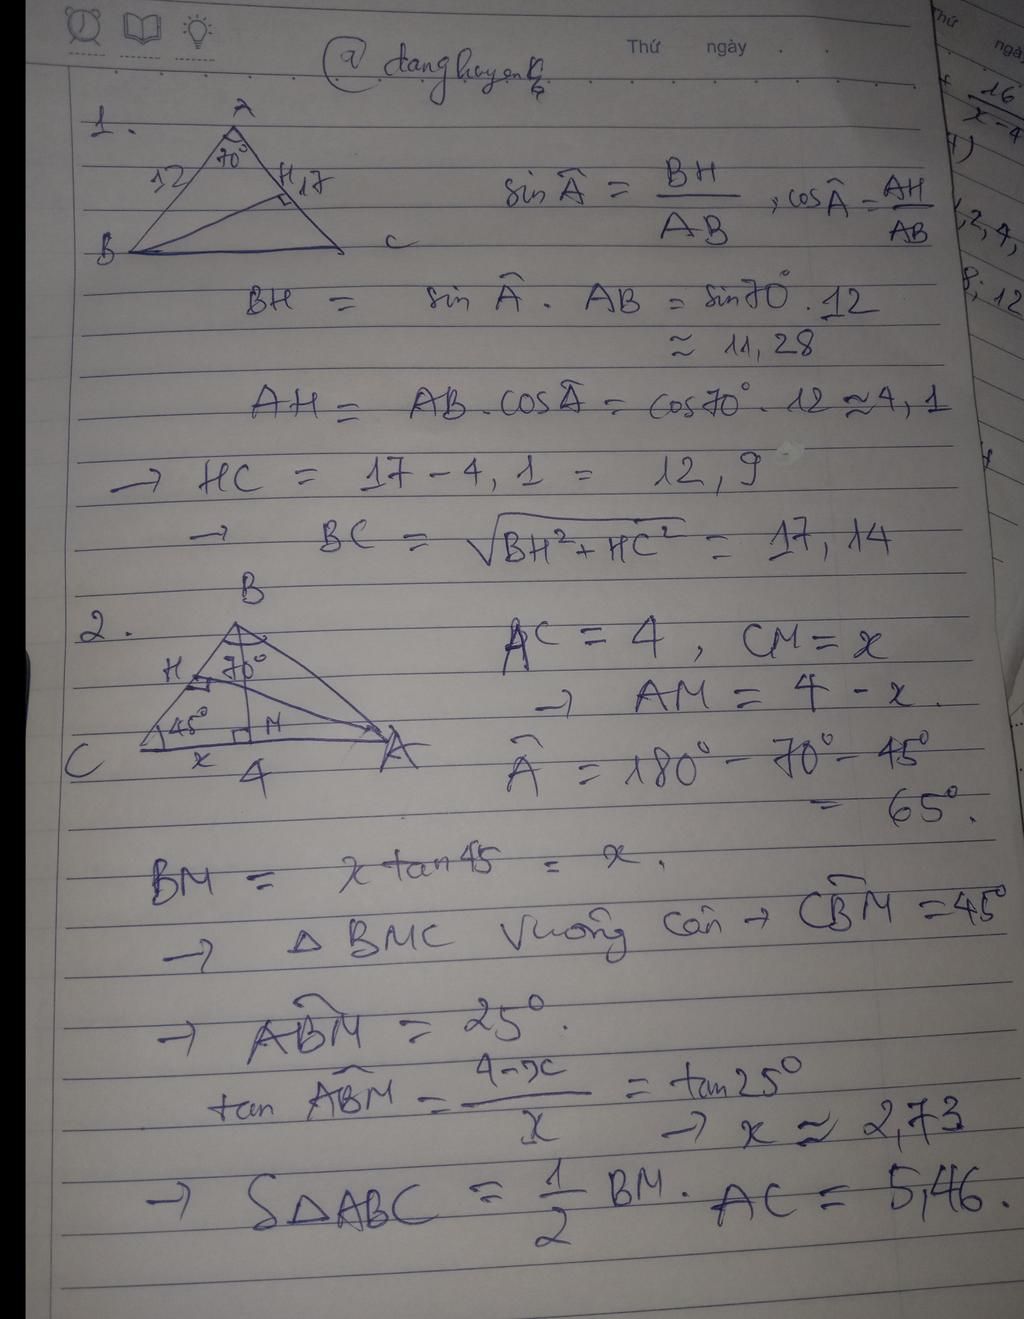 Thứ ngày
@ danghuyenk
1.
A
70°
12
H 17
B
C
sin Â = BH/AB , cos Â = AH/AB
BH = sin Â . AB = sin70° . 12
≈ 11,28
AH = AB . cos Â = cos70° . 12 ≈ 4,1
→ HC = 17 - 4,1 = 12,9
→ BC = √(BH² + HC²) = 17,14
2.
B
H 70°
45° M
C x A
4
AC = 4 , CM = x
→ AM = 4 - x.
Â = 180° - 70° - 45°
= 65°.
BM = x tan 45 = x.
→ △ BMC vuông cân → CB̂M = 45°
→ AB̂M = 25°.
tan AB̂M = (4-x)/x = tan25°
→ x ≈ 2,73
→ S△ABC = 1/2 BM . AC = 5,46.
Thứ
ngày
16
x - 4
,2,4,
8; 12